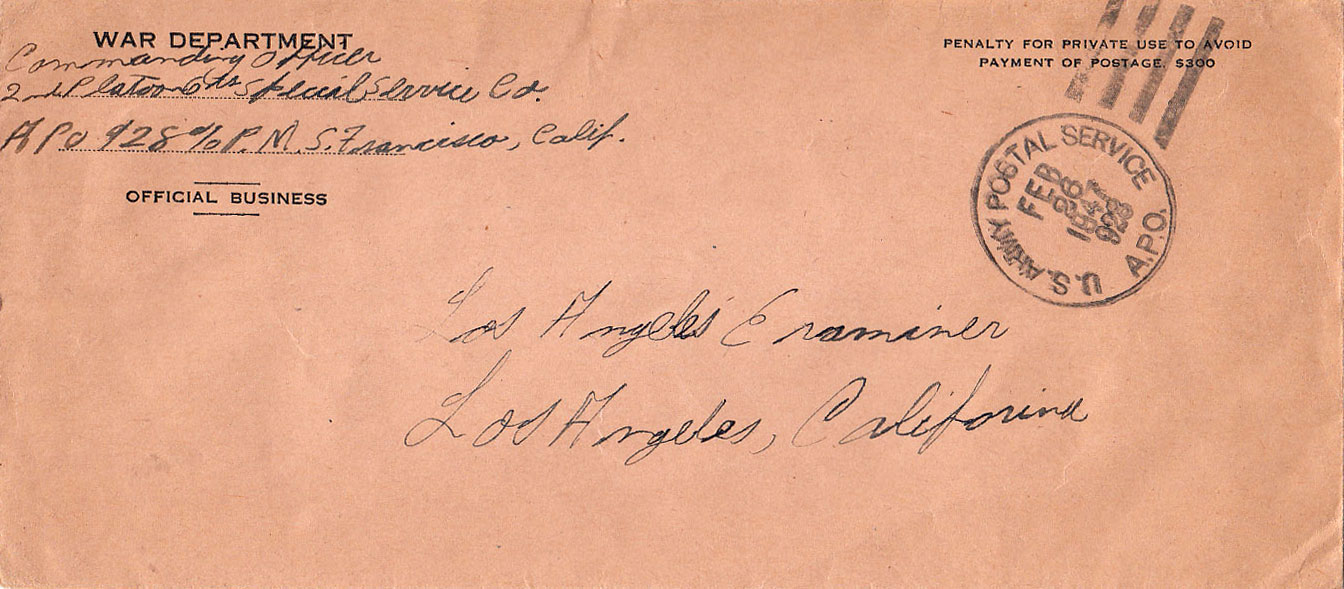 WAR DEPARTMENT
Commanding Officer
2nd Platoon 6th Special Service Co.
APO 928 % P. M. S. Francisco, Calif.
OFFICIAL BUSINESS
PENALTY FOR PRIVATE USE TO AVOID
PAYMENT OF POSTAGE, $300
U.S. ARMY POSTAL SERVICE
A.P.O.
FEB
26
1947
928
Los Angeles Examiner
Los Angeles, California